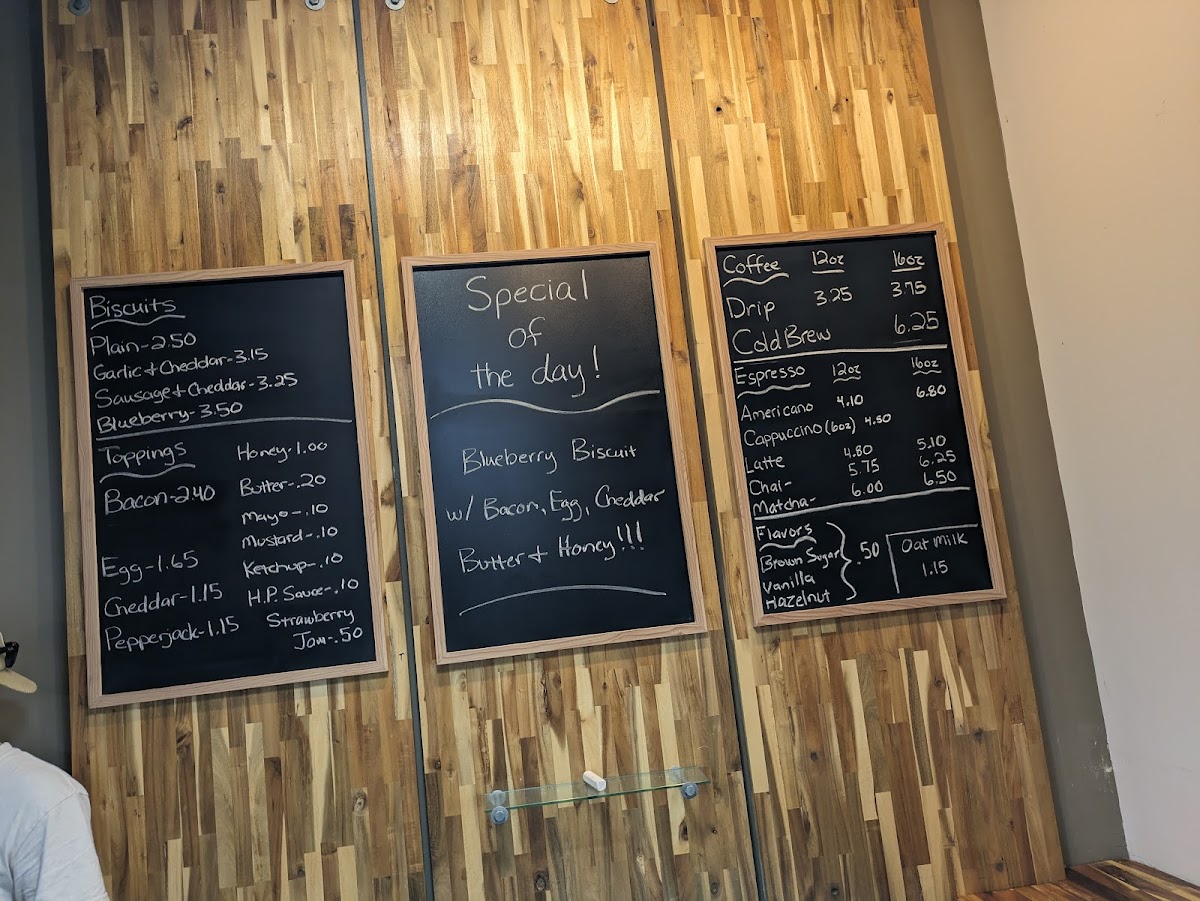 Biscuits
Plain-2.50
Garlic & Cheddar-3.15
Sausage & Cheddar-3.25
Blueberry-3.50
Toppings
Bacon-2.40
Egg-1.65
Cheddar-1.15
Pepperjack-1.15
Honey-1.00
Butter-.20
Mayo-.10
Mustard-.10
Ketchup-.10
H.P. Sauce-.10
Strawberry
Jam-.50
Special
of
the day!
Blueberry Biscuit
w/ Bacon, Egg, Cheddar
Butter & Honey!!!
Coffee 12oz 16oz
Drip 3.25 3.75
Cold Brew 6.25
Espresso 12oz 16oz
Americano 4.10 6.80
Cappuccino (6oz) 4.50
Latte 4.80 5.10
Chai- 5.75 6.25
Matcha- 6.00 6.50
Flavors
Brown Sugar
Vanilla
Hazelnut
.50
Oat milk
1.15